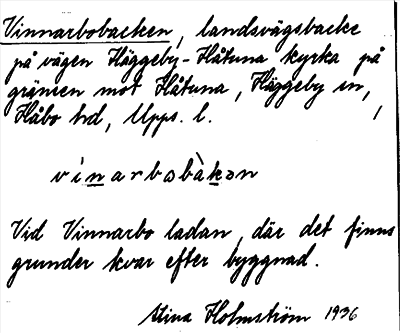 Vinnarbobacken, landsvägsbacke
på vägen Häggeby-Håtuna kyrka på
gränsen mot Håtuna, Häggeby sn,
Håbo hd, Upps. l.
vìnarbobàkən
Vid Vinnarbo ladan, där det finns
grunder kvar efter byggnad.
Stina Holmström 1936